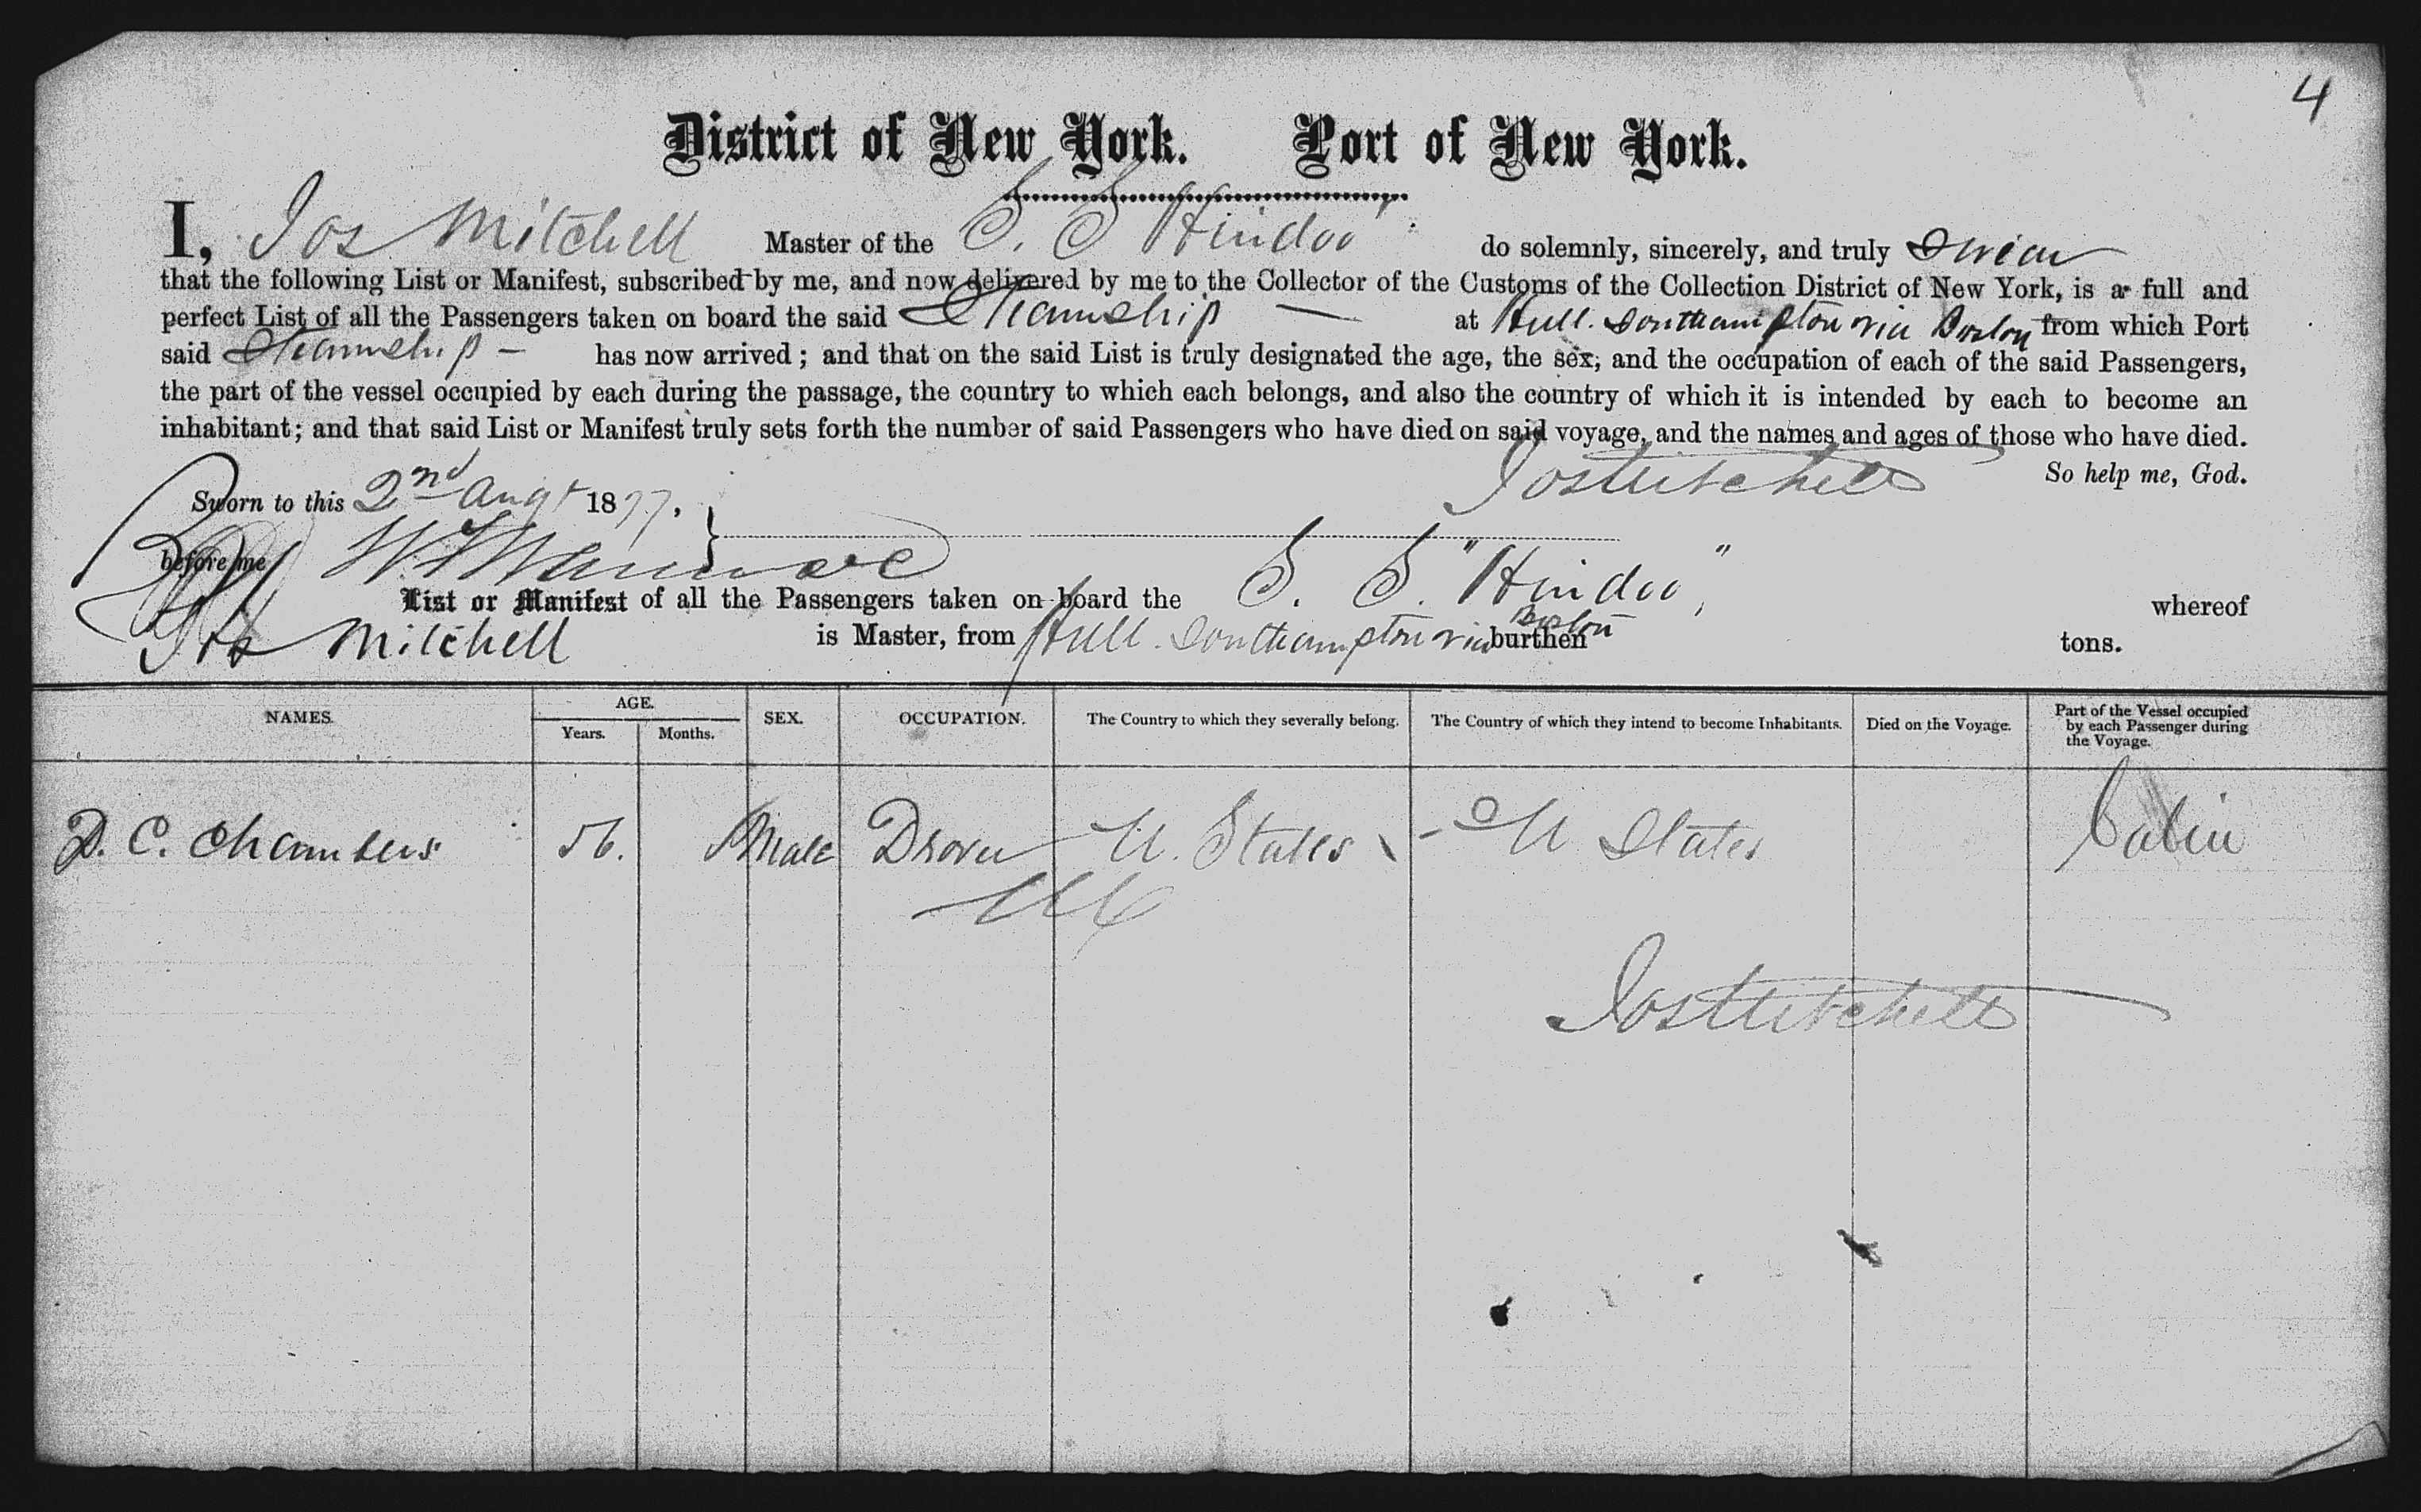 4
District of New York. Port of New York.
I, Jos Mitchell Master of the S. S. Hindoo do solemnly, sincerely, and truly Swear
that the following List or Manifest, subscribed by me, and now delivered by me to the Collector of the Customs of the Collection District of New York, is a full and
perfect List of all the Passengers taken on board the said Steamship — at Hull. Southampton via Boston from which Port
said Steamship — has now arrived; and that on the said List is truly designated the age, the sex, and the occupation of each of the said Passengers,
the part of the vessel occupied by each during the passage, the country to which each belongs, and also the country of which it is intended by each to become an
inhabitant; and that said List or Manifest truly sets forth the number of said Passengers who have died on said voyage, and the names and ages of those who have died.
Jos Mitchell So help me, God.
Sworn to this 2nd Augt 1877.
before me
List or Manifest of all the Passengers taken on board the S. S. "Hindoo", whereof
Jos Mitchell is Master, from Hull. Southampton via Boston burthen tons.
NAMES. AGE. Years. Months. SEX. OCCUPATION. The Country to which they severally belong. The Country of which they intend to become Inhabitants. Died on the Voyage. Part of the Vessel occupied by each Passenger during the Voyage.
D. C. Chambers 56. Male Drover U. States U States Cabin
Jos Mitchell